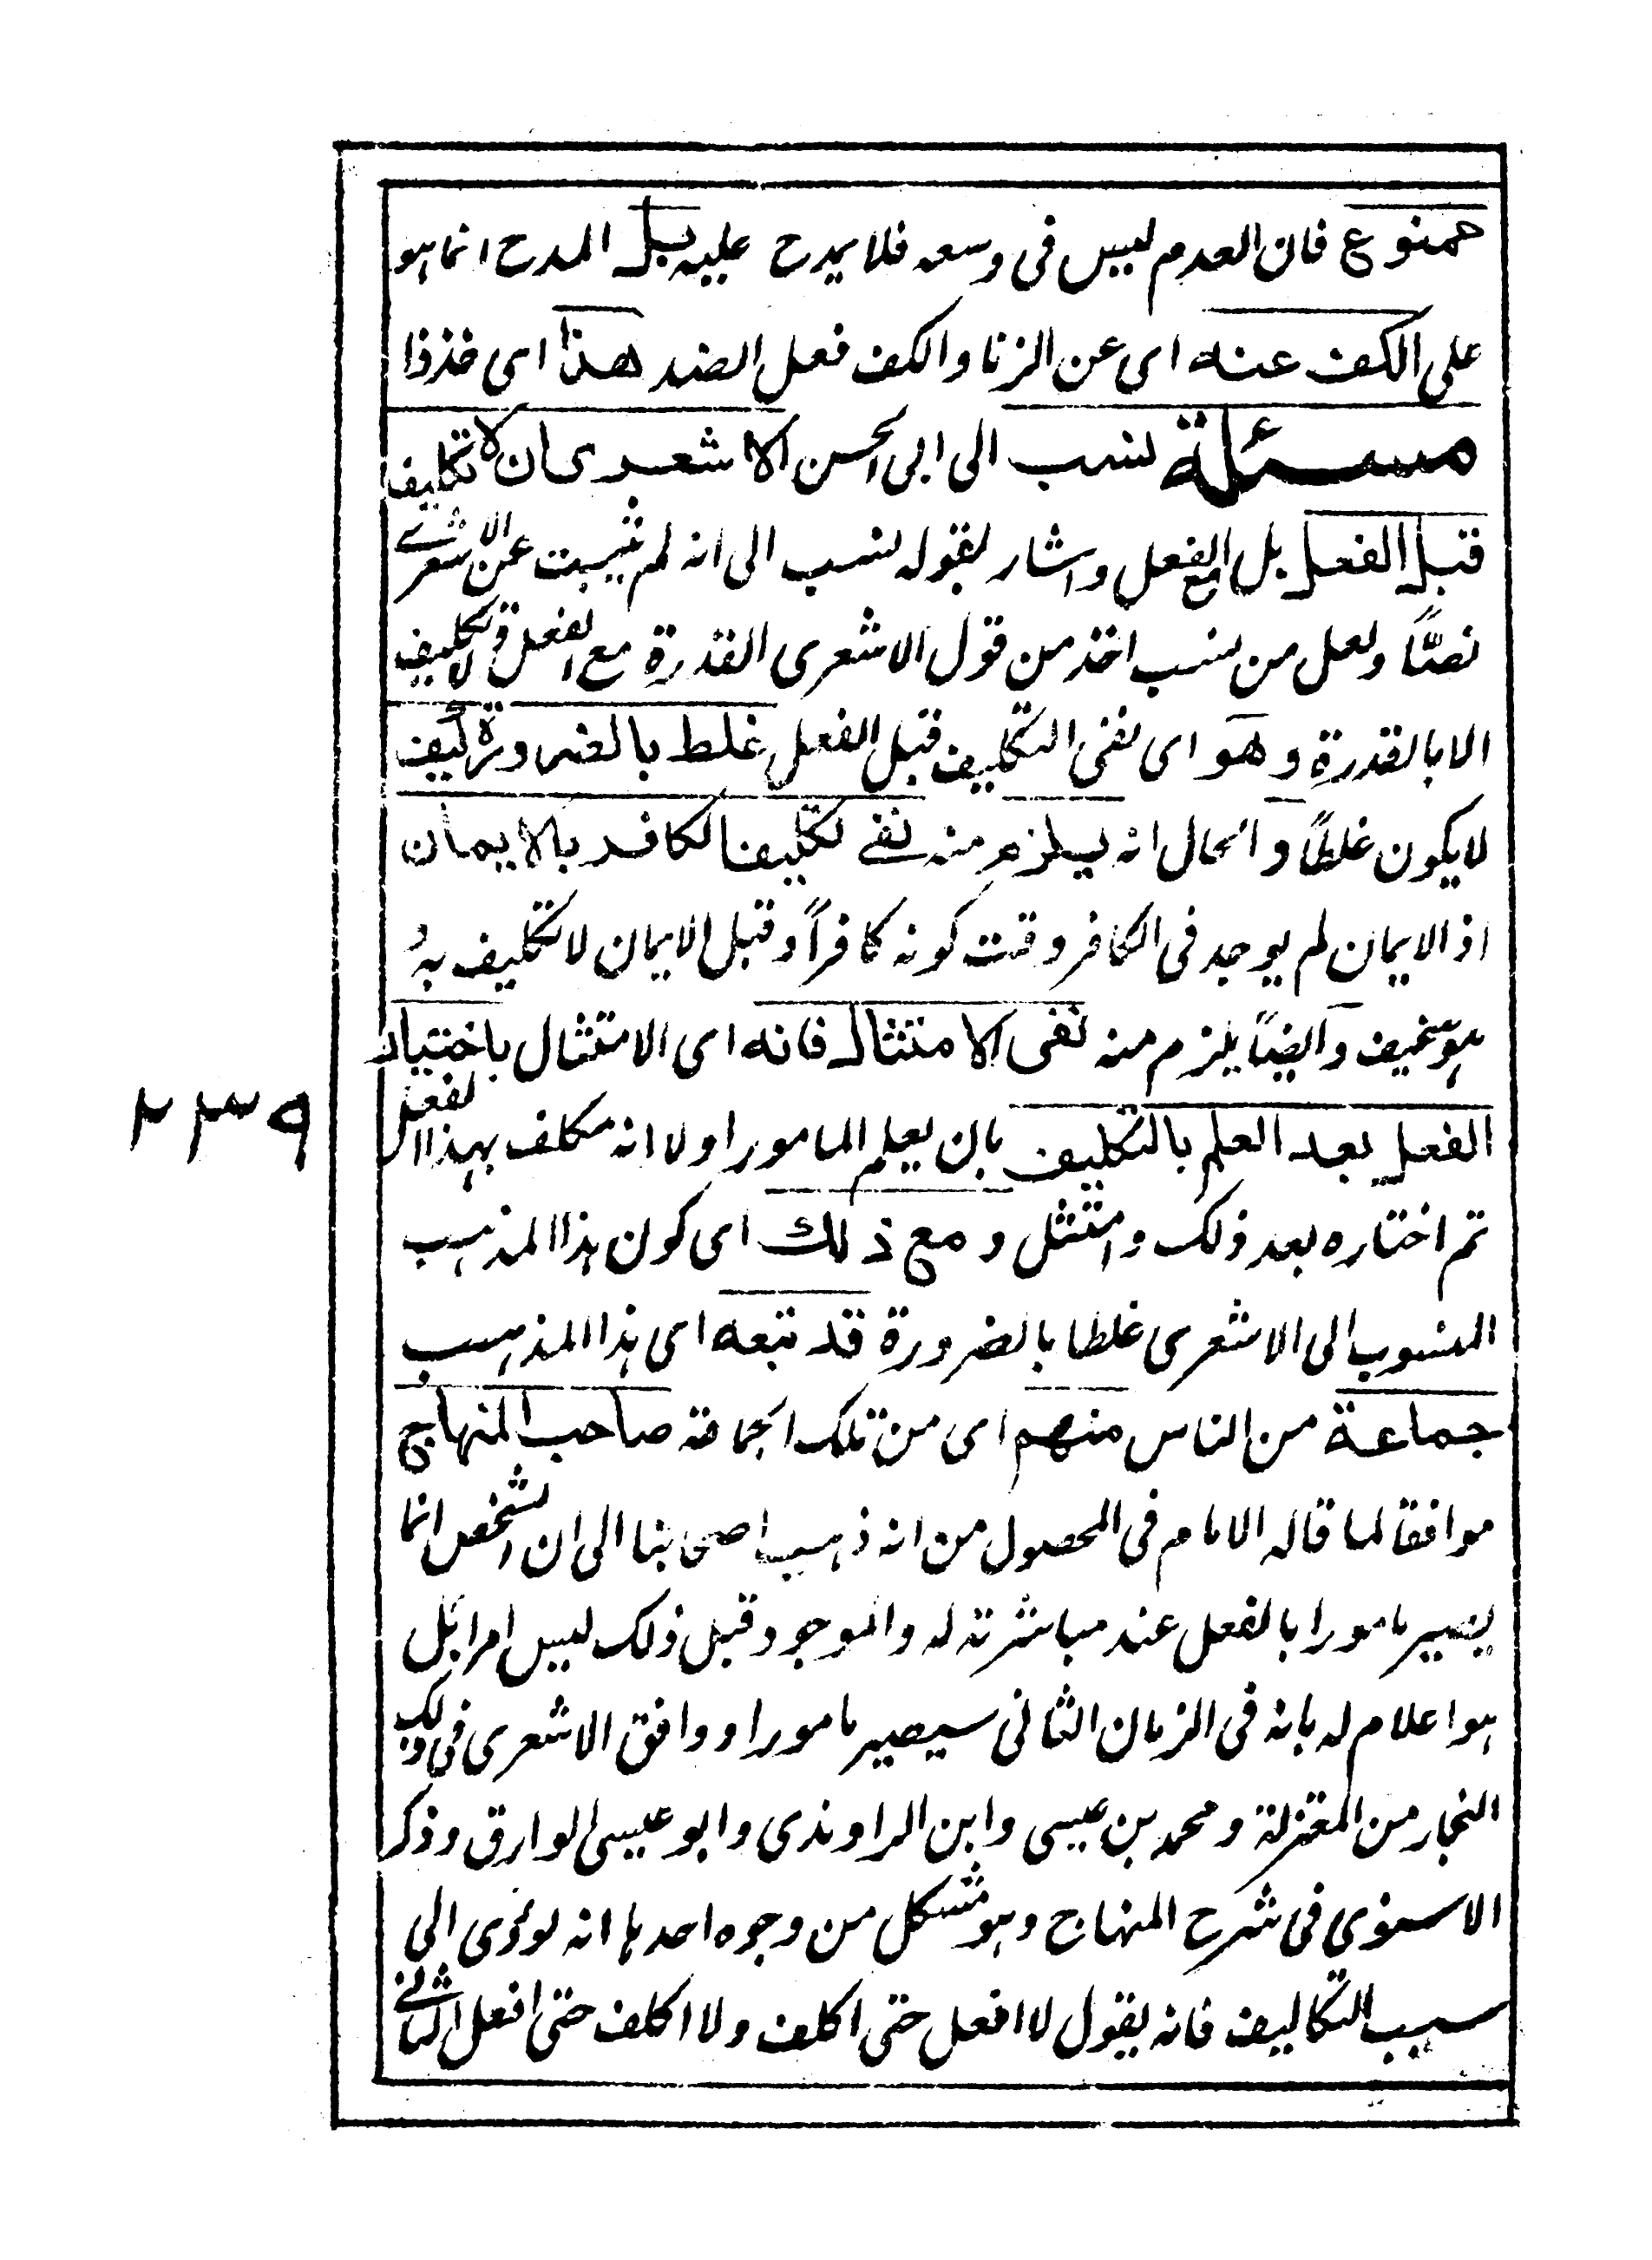 ممنوع فان العدم ليس فى وسعه فلا يمدح عليه بل المدح انما هو
على الكف عنه اى عن الزنا والكف فعل الضد هذا اى خذ ذا
مسئلة نسب الى ابى الحسن الاشعرى ان لا تكليف
قبل الفعل بل مع الفعل واشار بقوله نسب الى انه لم يثبت عن الاشعرى
نصًّا ولعل من نسب اخذ من قول الاشعرى القدرة مع الفعل ولا تكليف
الا بالقدرة وهو اى نفى التكليف قبل الفعل غلط بالضرورة كيف
لا يكون غلطًا والحال انه يلزم منه نفى تكليف الكافر بالايمان
اذ الايمان لم يوجد فى الكافر وقت كونه كافرًا وقبل الايمان لا تكليف به
هو سخيف وايضًا يلزم منه نفى الامتثال فانه اى الامتثال باختيار
الفعل بعد العلم بالتكليف بان يعلم المامور اولا انه مكلف بهذا الفعل
ثم اختاره بعد ذلك وامتثل ومع ذلك اى كون هذا المذهب
المنسوب الى الاشعرى غلطا بالضرورة قد تبعه اى هذا المذهب
جماعة من الناس منهم اى من تلك الجماعة صاحب المنهاج
موافقا لما قاله الامام فى المحصول من انه ذهب اصحابنا الى ان الشخص انما
يصير مامورا بالفعل عند مباشرته له والموجود قبل ذلك ليس امرا بل
هو اعلام له بانه فى الزمان الثانى سيصير مامورا ووافق الاشعرى فى ذلك
النجار من المعتزلة ومحمد بن عيسى وابن الراوندى وابو عيسى الوارق وذكر
الاسنوي فى شرح المنهاج وهو مشكل من وجوه احدها انه يؤدى الى
سبب التكاليف فانه يقول لا افعل حتى اكلف ولا اكلف حتى افعل الثانى
٢٣٩